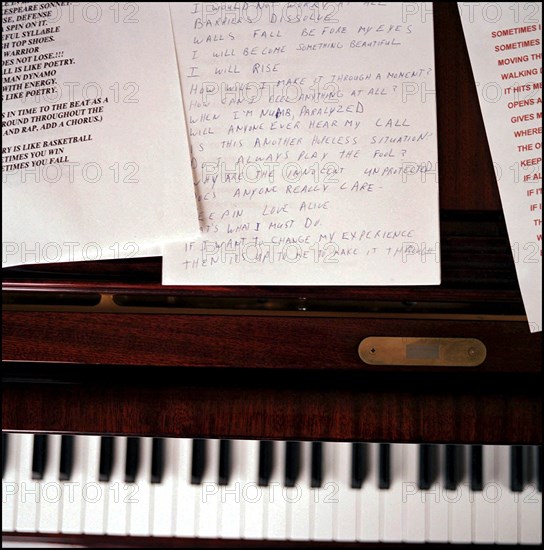 KESPEARE SONNET
A SPIN ON IT.
EFUL SYLLABLE
GH TOP SHOES.
WARRIOR
OES NOT LOSE.!!!
ALL IS LIKE POETRY.
HUMAN DYNAMO
WITH ENERGY.
S LIKE POETRY.
S IN TIME TO THE BEAT AS A
ROUND THROUGHOUT THE
AND RAP, ADD A CHORUS.)
RY IS LIKE BASKETBALL
METIMES YOU WIN
METIMES YOU FALL
I WOULD NOT WORRY AT ALL
BARRIERS DISSOLVE
WALLS FALL BEFORE MY EYES
I WILL BECOME SOMETHING BEAUTIFUL
I WILL RISE
HOW WILL I MAKE IT THROUGH A MOMENT?
HOW CAN I FEEL ANYTHING AT ALL?
WHEN I'M NUMB, PARALYZED
WILL ANYONE EVER HEAR MY CALL
IS THIS ANOTHER HOPELESS SITUATION
ALWAYS PLAY THE FOOL?
WHY ARE THE INNOCENT UNPROTECTED
DOES ANYONE REALLY CARE-
KEEPIN LOVE ALIVE
THAT'S WHAT I MUST DO.
IF I WANT TO CHANGE MY EXPERIENCE
THEN IT'S UP TO ME TO MAKE IT THROUGH
SOMETIMES I
SOMETIMES
MOVING TH
WALKING
IT HITS ME
OPENS A
GIVES M
WHERE
THE O
KEEP
IF AL
IF IT
IF I
TH
PHOTO 12